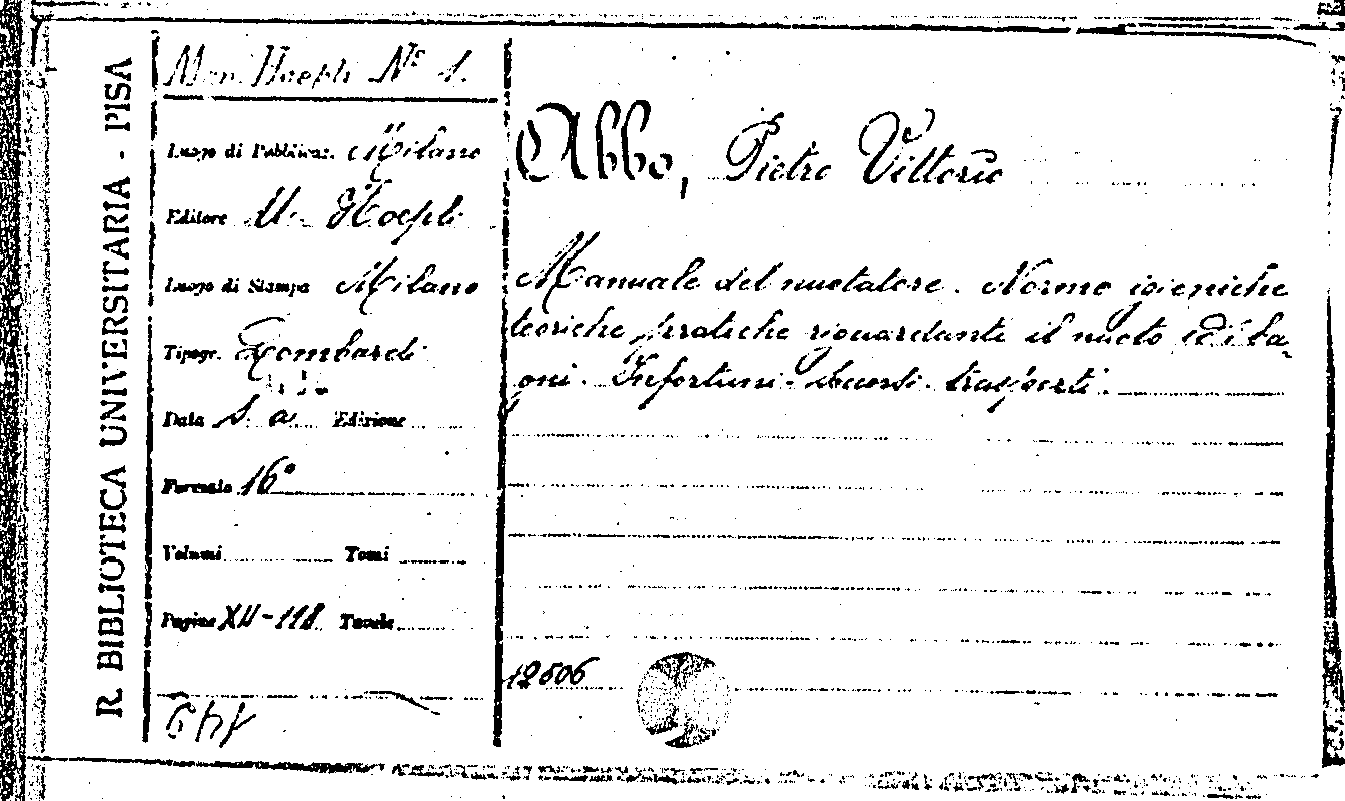 R. BIBLIOTECA UNIVERSITARIA - PISA
Man. Hoepli Nº 1.
Luogo di Pubblicaz. Milano
Editore U. Hoepli
Luogo di Stampa Milano
Tipogr. Lombardi
Data s. a. Edizione
Formato 16°
Volumi Tomi
Pagine XII-118 Tavole
Abbo, Pietro Vittorio
Manuale del nuotatore. Norme igieniche
teoriche pratiche riguardante il nuoto ed i ba-
gni. Infortuni. soccorsi. trasporti.
12506